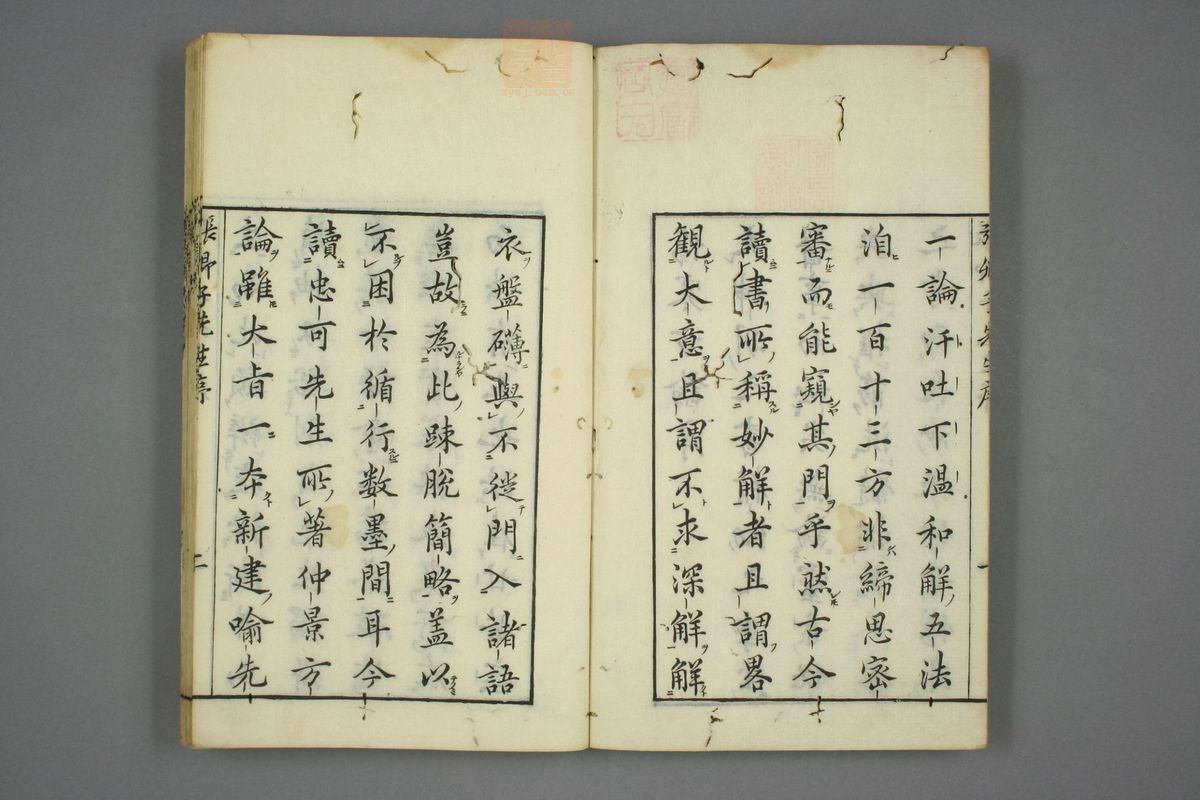 一論汗吐下温和解五法
洎一百十三方非締思密
審而能窺其門乎然古今
讀書所稱妙解者且謂畧
観大意且謂不求深解解
衣盤礴與不從門入諸語
豈故為此踈脱簡略盖以
不困於循行数墨間耳今
讀忠可先生所著仲景方
論雖大㫖一本新建喻先
二